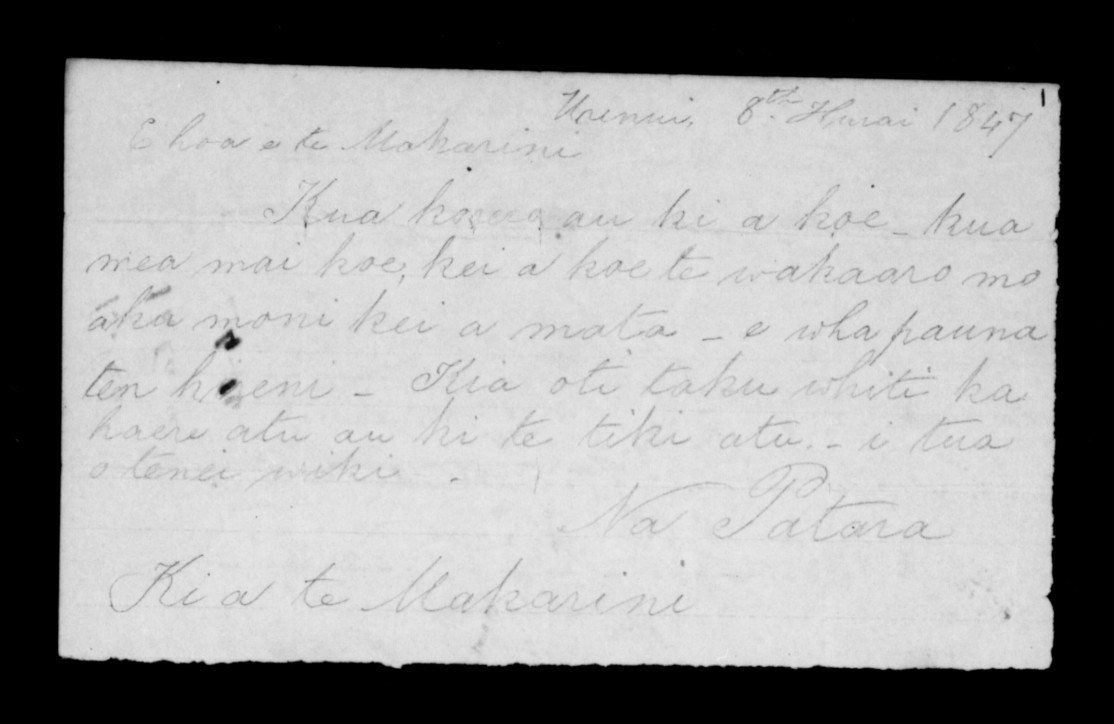 1
Urenui, 8th Hurai 1847
E hoa e te Makarini
Kua korero au ki a koe - kua
mea mai koe, kei a koe te wakaaro mo
aku moni kei a mata - e wha pauna
ten hereni - Kia oti taku whiti ka
haere atu au ki te tiki atu. - i tua
o tenei wiki -
Na Patara
Ki a te Makarini